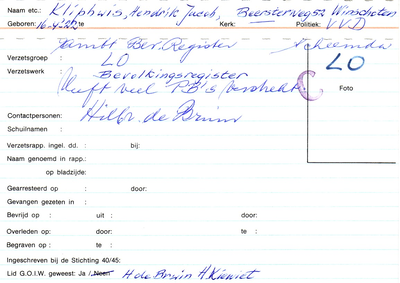 Naam etc.: Kliphuis, Hendrik Jacob, Beersterweg 52 Winschoten
Geboren: 16-4-'22 te Kerk: Politiek: V.V.D
Ambt. Bev. Register Scheemda
Verzetsgroep : LO LO
Verzetswerk : Bevolkingsregister
Heeft veel P.B.'s verstrekt. Foto
Contactpersonen: Hilbr. de Bruin
Schuilnaam :
Verzetsrapp. ingel. dd. : bij:
Naam genoemd in rapp. :
op bladzijde:
Gearresteerd op : door:
Gevangen gezeten in :
Bevrijd op : uit : door:
Overleden op: door: te :
Begraven op : te :
Ingeschreven bij de Stichting 40/45:
Lid G.O.I.W. geweest: Ja / Neen H de Bruin H. Kiewiet